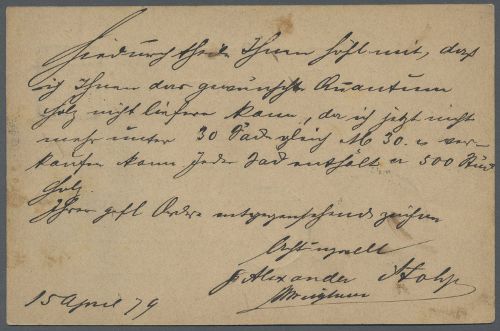 Hiedurch theile Ihnen höfl mit, daß
ich Ihnen das gewünschte Quantum
Holz nicht liefern kann, da ich jetzt nicht
mehr unter 30 Sad gleich M 30. - ver-
kaufen kann Jeder Sad enthält 500 Stück
Holz.
Ihrer gefl Ordre entgegensehend zeichne
Achtungsvoll
Alexander
15 April 79